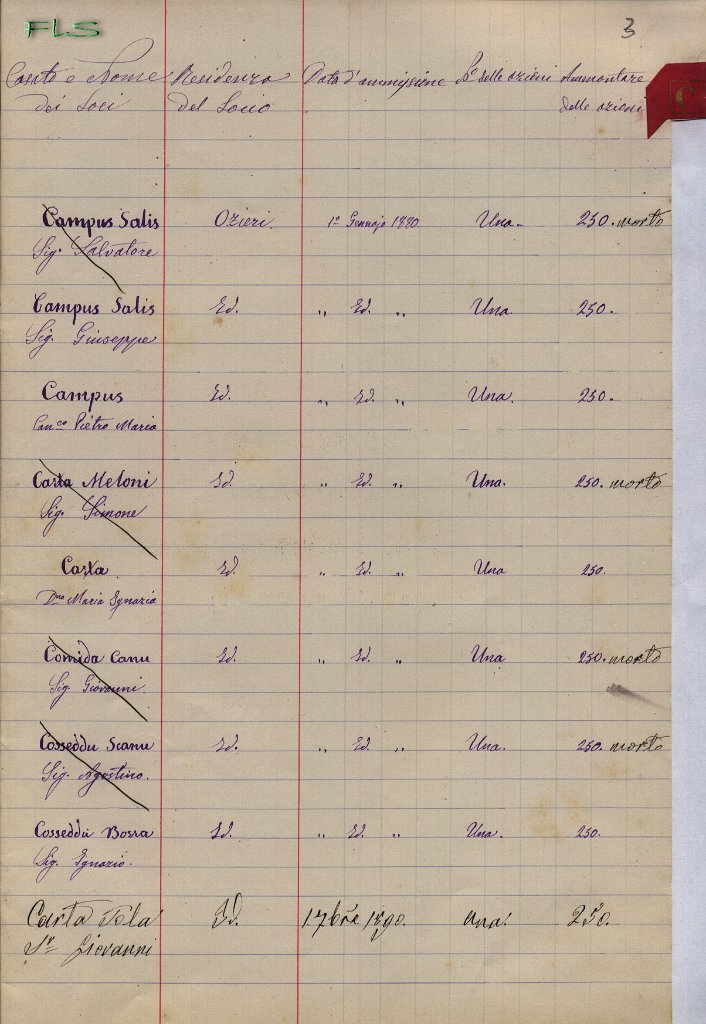 FLS
3
Casato e Nome Residenza Data d'ammissione No delle azioni Ammontare
dei Soci del Socio delle azioni
C
Campus Salis Ozieri. 1o Gennajo 1880. Una. 250. morto
Sig. Salvatore
Campus Salis Id. " Id. " Una. 250.
Sig. Giuseppe
Campus Id. " Id. " Una. 250.
Canco Pietro Maria
Carta Meloni Id. " Id. " Una. 250. morto
Sig. Simone
Carta Id. " Id. " Una 250.
Maria Ignazia
Comida Canu Id. " Id. " Una 250. morto
Sig. Giovanni.
Cosseddu Scanu Id. " Id. " Una. 250. morto
Sig. Agostino.
Cosseddu Borra Id. " Id. " Una. 250.
Sig. Ignazio.
Carta Tola Id. 1 7bre 1890. una. 250.
Sr Giovanni